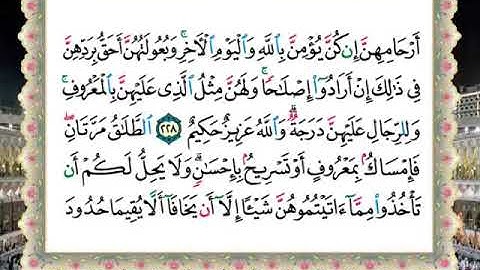 أَرْحَامِهِنَّ إِن كُنَّ يُؤْمِنَّ بِٱللَّهِ وَٱلْيَوْمِ ٱلْآخِرِ ۚ وَبُعُولَتُهُنَّ أَحَقُّ بِرَدِّهِنَّ
فِى ذَٰلِكَ إِنْ أَرَادُوٓا۟ إِصْلَٰحًا ۚ وَلَهُنَّ مِثْلُ ٱلَّذِى عَلَيْهِنَّ بِٱلْمَعْرُوفِ ۚ
وَلِلرِّجَالِ عَلَيْهِنَّ دَرَجَةٌ ۗ وَٱللَّهُ عَزِيزٌ حَكِيمٌ ٢٢٨ ٱلطَّلَٰقُ مَرَّتَانِ ۖ
فَإِمْسَاكٌۢ بِمَعْرُوفٍ أَوْ تَسْرِيحٌۢ بِإِحْسَٰنٍ ۗ وَلَا يَحِلُّ لَكُمْ أَن
تَأْخُذُوا۟ مِمَّآ ءَاتَيْتُمُوهُنَّ شَيْـًٔا إِلَّآ أَن يَخَافَآ أَلَّا يُقِيمَا حُدُودَ